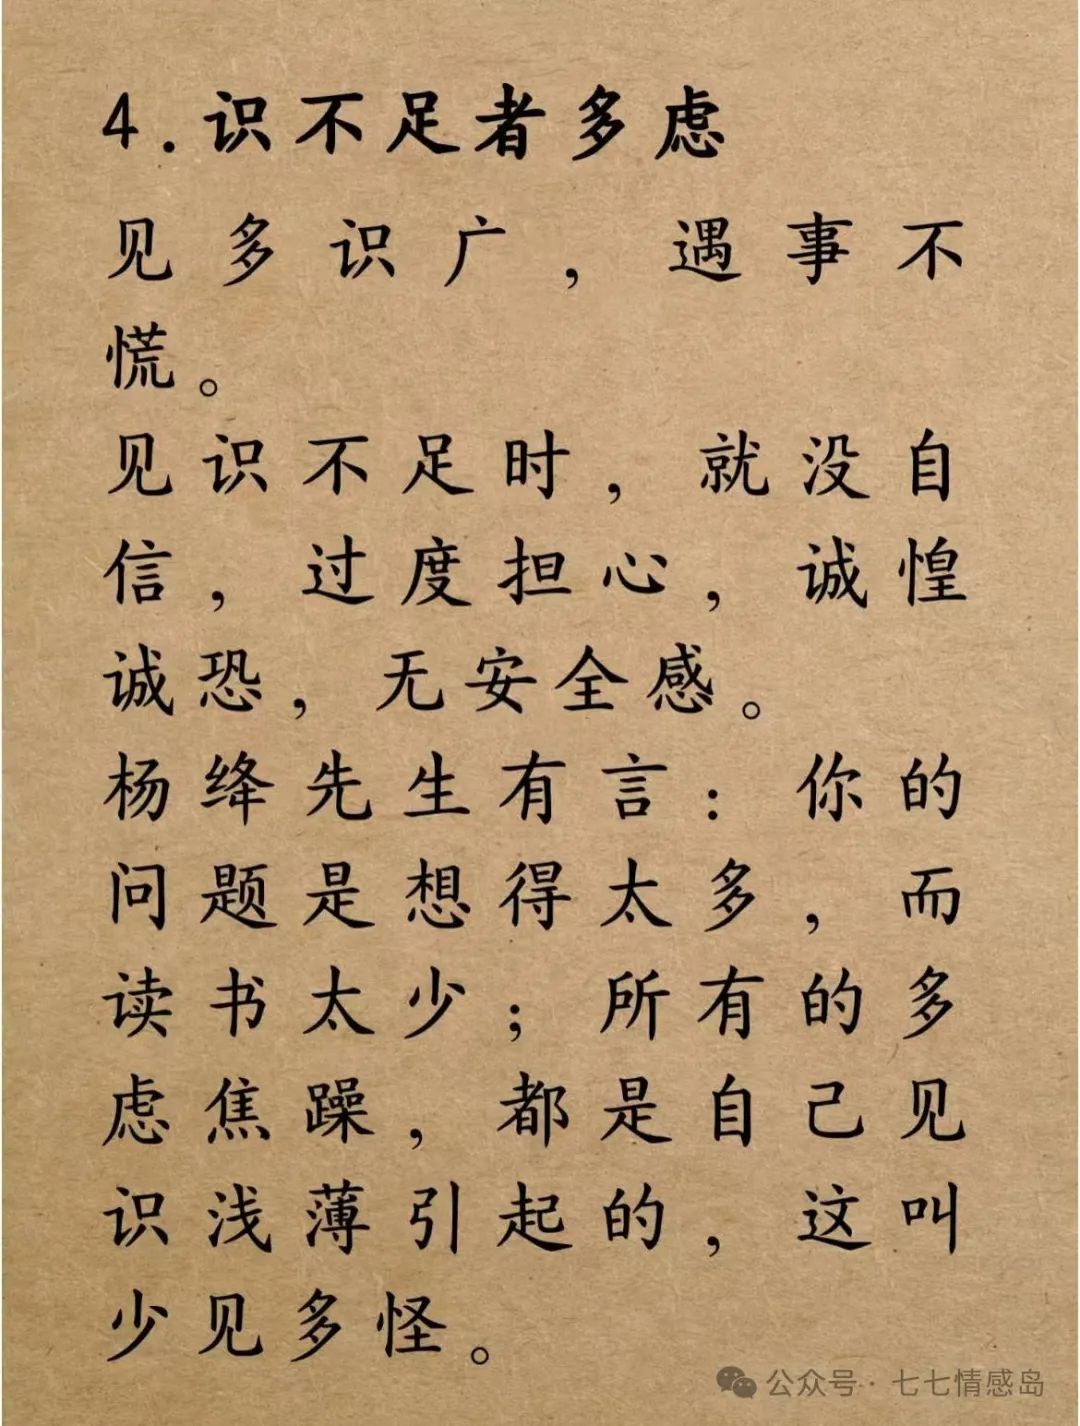 4.识不足者多虑
见多识广，遇事不
慌。
见识不足时，就没自
信，过度担心，诚惶
诚恐，无安全感。
杨绛先生有言：你的
问题是想得太多，而
读书太少；所有的多
虑焦躁，都是自己见
识浅薄引起的，这叫
少见多怪。
公众号·七七情感岛